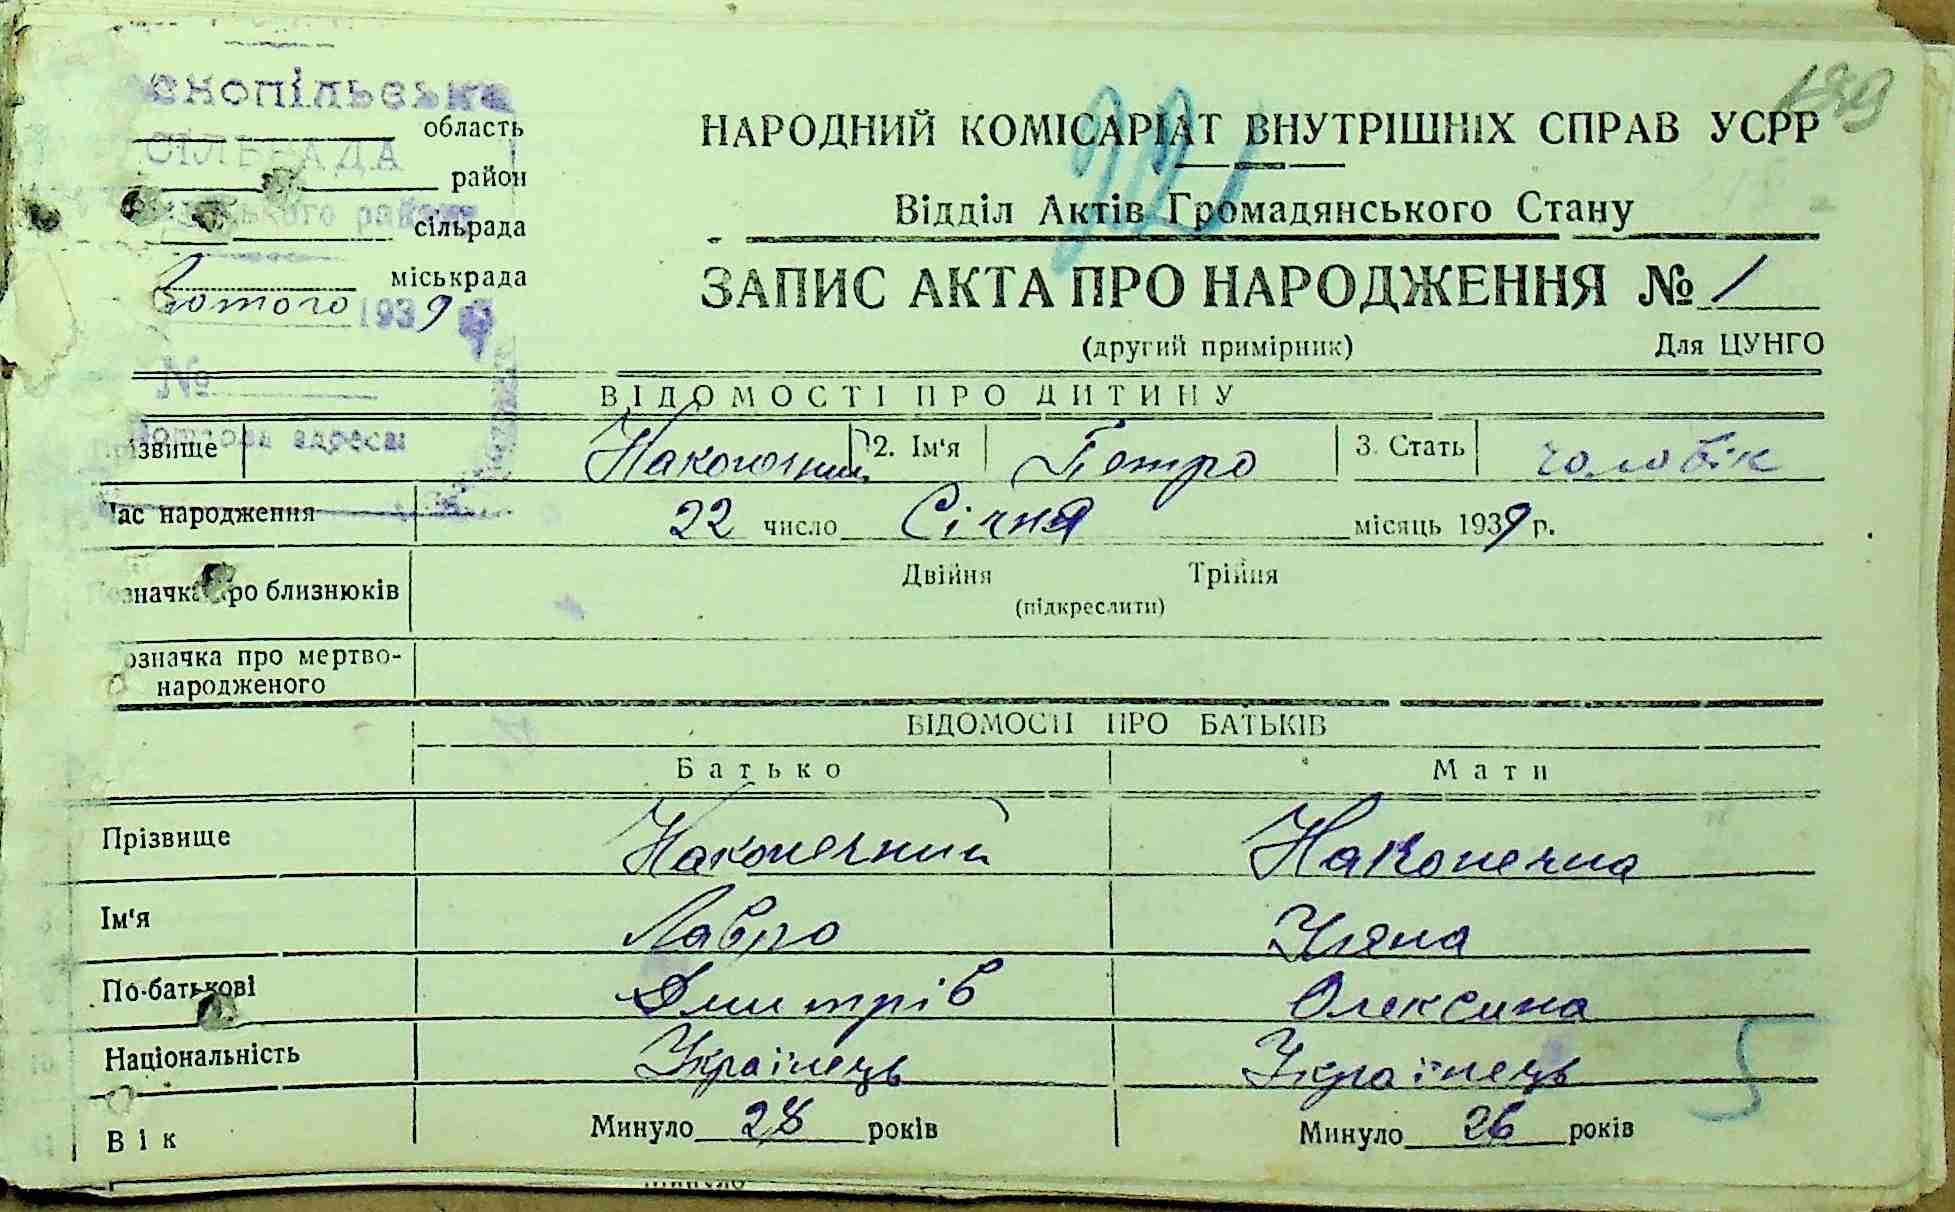 189
снопільська
область
СІЛЬРАДА
район
ького району
сільрада
міськрада
Лютого 1939
№
Поштова адреса:
НАРОДНИЙ КОМІСАРІАТ ВНУТРІШНІХ СПРАВ УСРР
Відділ Актів Громадянського Стану
ЗАПИС АКТА ПРО НАРОДЖЕННЯ № 1
(другий примірник) Для ЦУНГО
ВІДОМОСТІ ПРО ДИТИНУ
різвище Наконечний 2. Ім'я Петро 3. Стать чоловік
Час народження 22 число Січня місяць 1939 р.
означка про близнюків Двійня Трійня
(підкреслити)
означка про мертво-
народженого
ВІДОМОСТІ ПРО БАТЬКІВ
Батько Мати
Прізвище Наконечний Наконечна
Ім'я Лавро Уляна
По-батькові Дмитрів Олексина
Національність Українець Українець
Вік Минуло 28 років Минуло 26 років
5